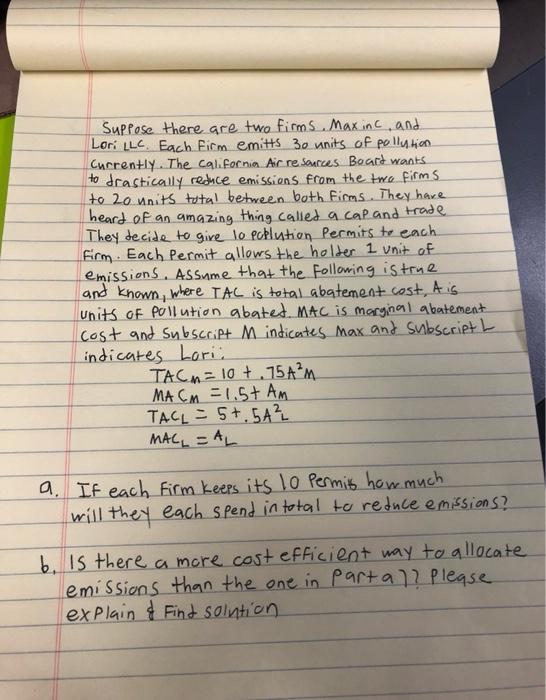 Suppose there are two firms, Max inc, and
Lori LLC. Each Firm emitts 30 units of pollution
Currently. The California Air resources Board wants
to drastically reduce emissions from the two firms
to 20 units total between both Firms. They have
heard of an amazing thing called a cap and trade
They decide to give 10 pollution Permits to each
Firm. Each Permit allows the holder 1 unit of
emissions. Assume that the Following is true
and known, where TAC is total abatement cost, A is
units of pollution abated. MAC is marginal abatement
Cost and Subscript M indicates Max and Subscript L
indicates Lori:
TACM = 10 + .75A²M
MACM = 1.5 + AM
TACL = 5 + .5A²L
MACL = AL
a. If each Firm keeps its 10 Permits how much
will they each spend in total to reduce emissions?
b. Is there a more cost efficient way to allocate
emissions than the one in Part a)? Please
explain & Find solution